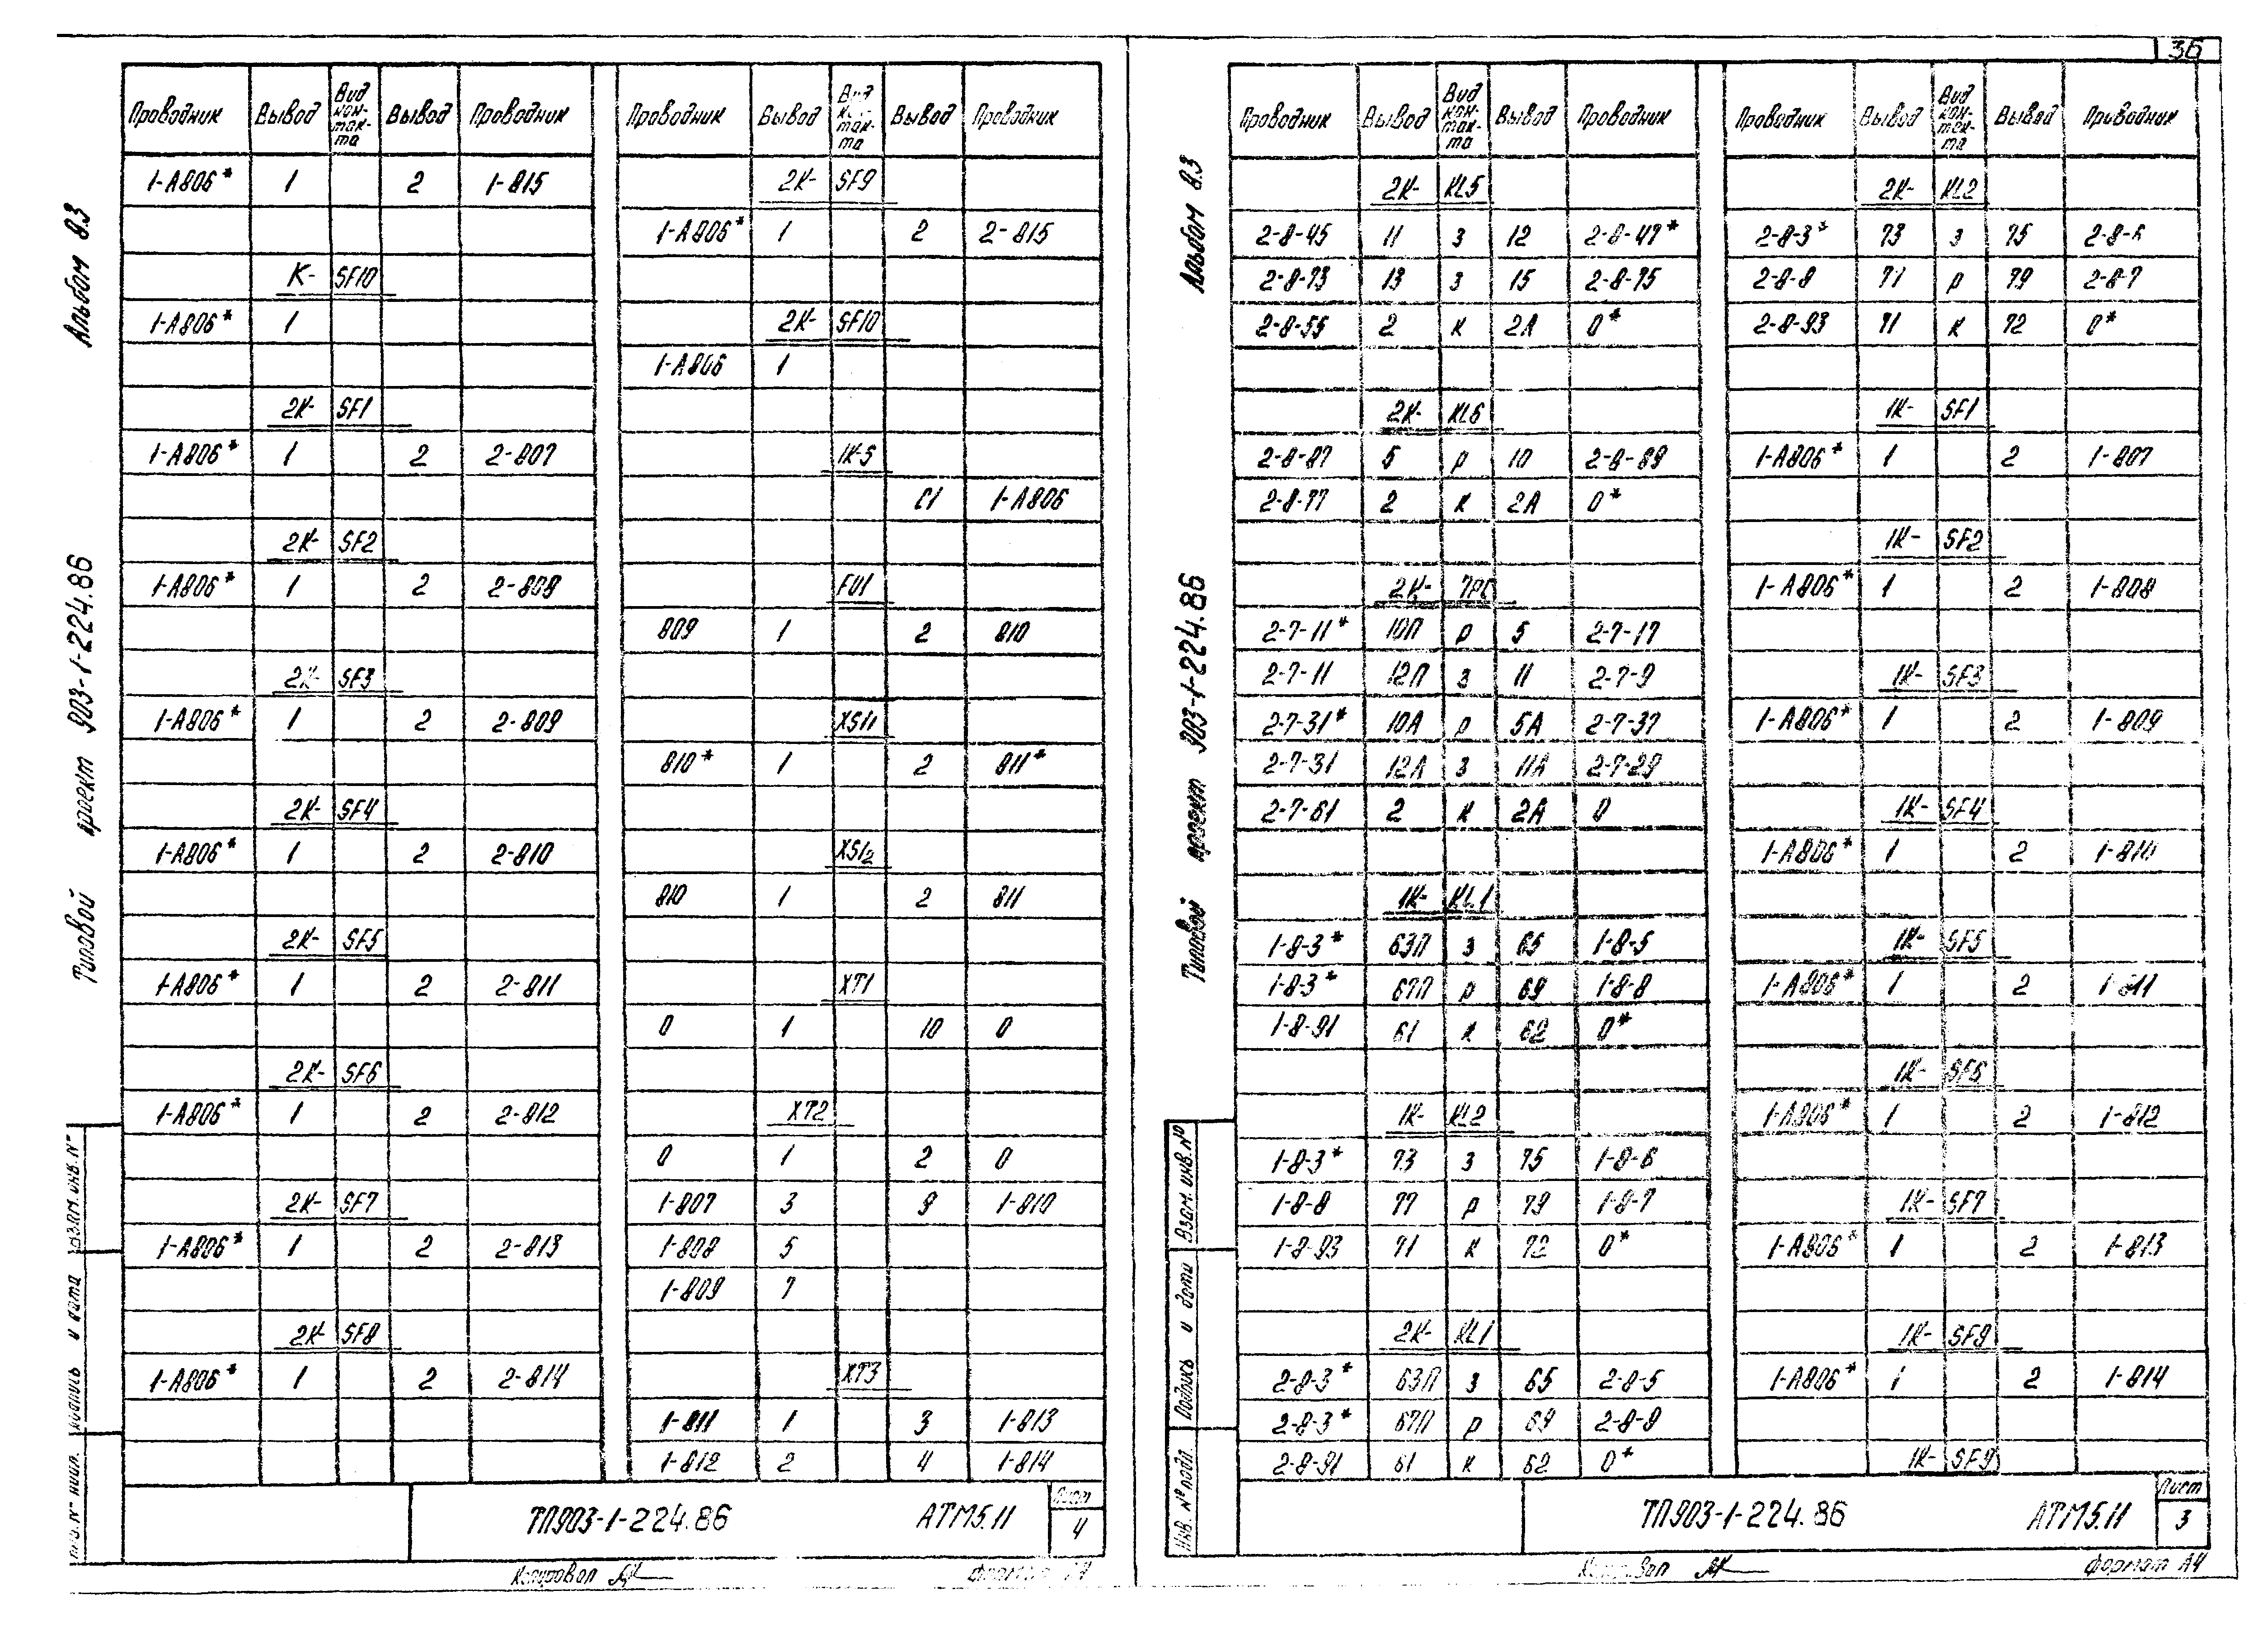 36
Альбом 8.3
Типовой проект 903-1-224.86
Проводник Вывод Вид кон-так-та Вывод Проводник
1-А806* 1 2 1-815
К- SF10
1-А806* 1
2К- SF1
1-А806* 1 2 2-807
2К- SF2
1-А806* 1 2 2-808
2К- SF3
1-А806* 1 2 2-809
2К- SF4
1-А806* 1 2 2-810
2К- SF5
1-А806* 1 2 2-811
2К- SF6
1-А806* 1 2 2-812
2К- SF7
1-А806* 1 2 2-813
2К- SF8
1-А806* 1 2 2-814
Проводник Вывод Вид кон-так-та Вывод Проводник
2К- SF9
1-А806* 1 2 2-815
2К- SF10
1-А806 1
1К-5
С1 1-А806
FU1
809 1 2 810
XS11
810* 1 2 811*
XS12
810 1 2 811
XT1
0 1 10 0
XT2
0 1 2 0
1-807 3 9 1-810
1-808 5
1-809 7
XT3
1-811 1 3 1-813
1-812 2 4 1-814
ТП903-1-224.86 АТМ5.11
Лист
4
Копировал
Взам. инв. №
Подпись и дата
Альбом 8.3
Типовой проект 903-1-224.86
Проводник Вывод Вид кон-так-та Вывод Проводник
2К- KL5
2-8-45 11 з 12 2-8-47*
2-8-73 13 з 15 2-8-75
2-8-55 2 к 2А 0*
2К- KL6
2-8-87 5 р 10 2-8-89
2-8-77 2 к 2А 0*
2К-
2-7-11* 10П р 5 2-7-17
2-7-11 12П з 11 2-7-9
2-7-31* 10А р 5А 2-7-37
2-7-31 12А з 11А 2-7-29
2-7-61 2 к 2А 0
1К- KL1
1-8-3* 63П з 65 1-8-5
1-8-3* 67П р 69 1-8-8
1-8-91 61 к 62 0*
1К- KL2
1-8-3* 73 з 75 1-8-6
1-8-8 77 р 79 1-8-7
1-8-93 71 к 72 0*
2К- KL1
2-8-3* 63П з 65 2-8-5
2-8-3* 67П р 69 2-8-8
2-8-91 61 к 62 0*
Проводник Вывод Вид кон-так-та Вывод Проводник
2К- KL2
2-8-3* 73 з 75 2-8-6
2-8-8 71 р 79 2-8-7
2-8-93 71 к 72 0*
1К- SF1
1-А806* 1 2 1-807
1К- SF2
1-А806* 1 2 1-808
1К- SF3
1-А806* 1 2 1-809
1К- SF4
1-А806* 1 2 1-810
1К- SF5
1-А806* 1 2 1-811
1К- SF6
1-А806* 1 2 1-812
1К- SF7
1-А806* 1 2 1-813
1К- SF8
1-А806* 1 2 1-814
1К- SF9
ТП903-1-224.86 АТМ5.11
Лист
3
Копировал
Формат А4
Взам. инв. №
Подпись и дата
Инв. № подл.